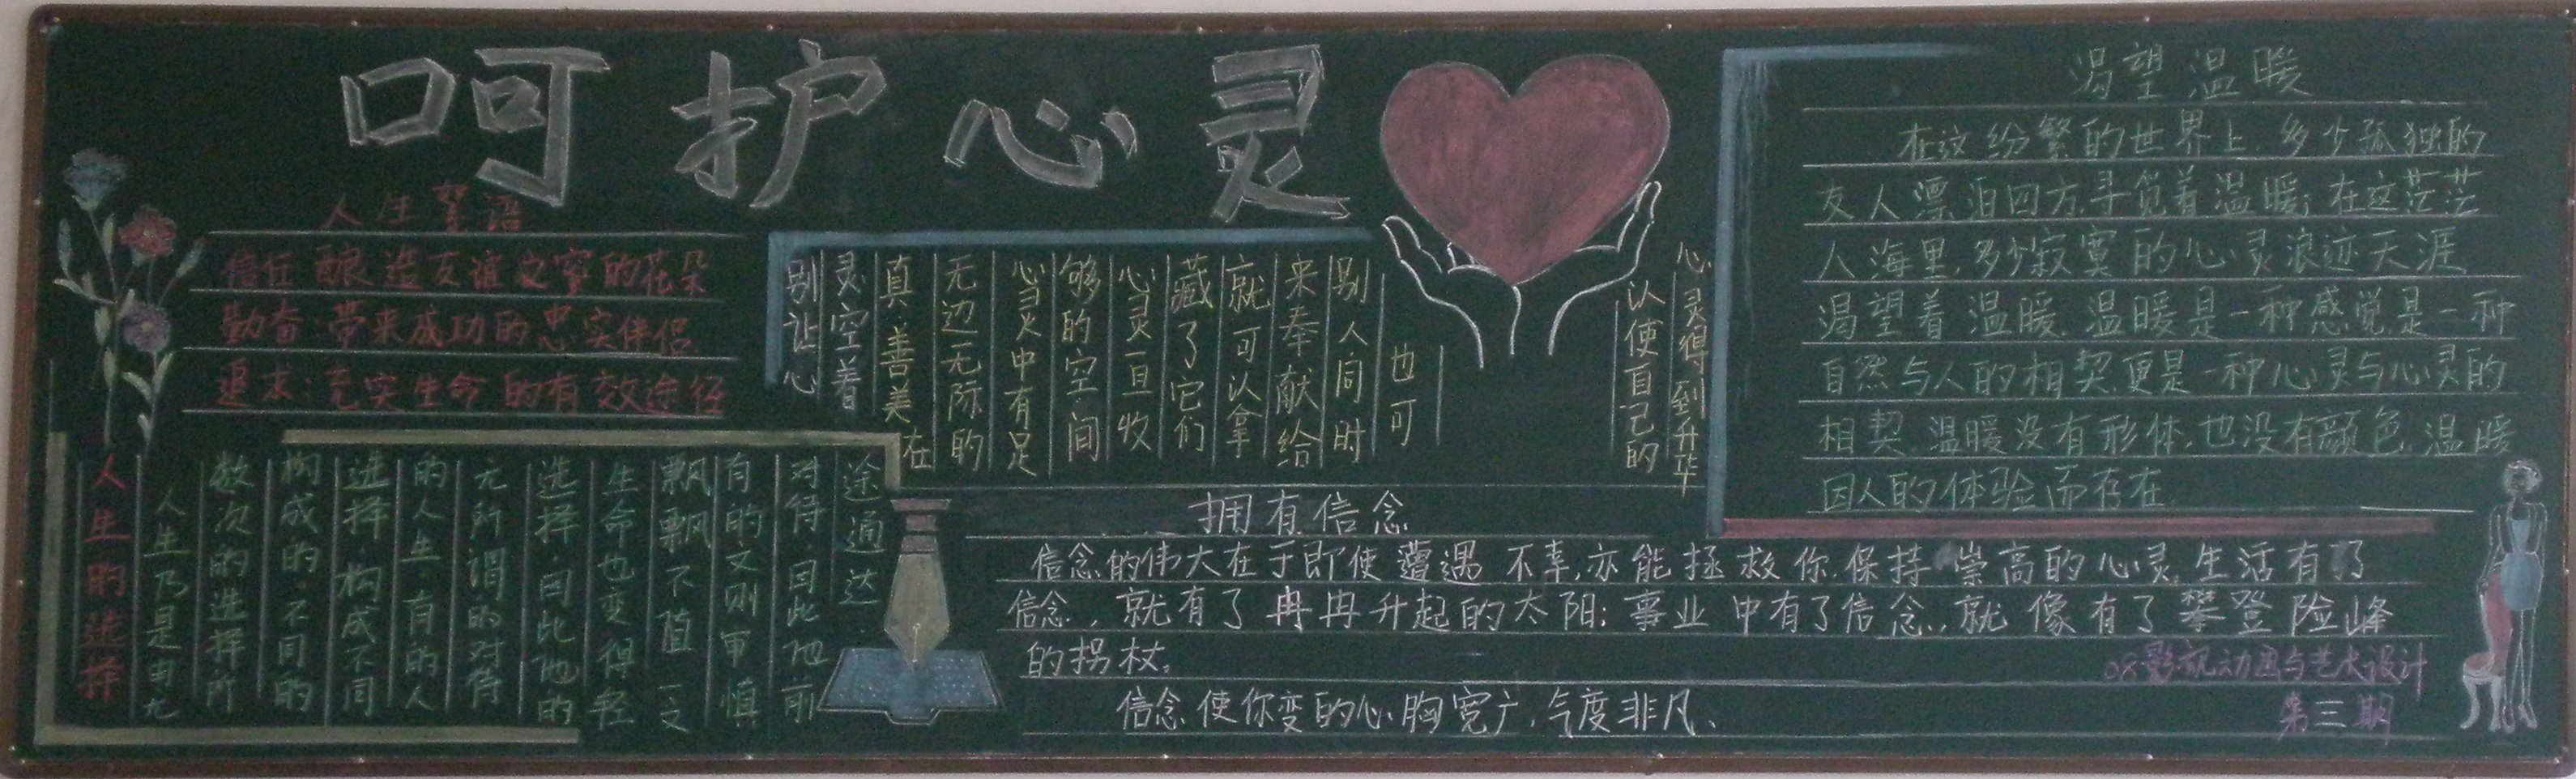 呵护心灵
人生絮语
信任:酿造友谊之蜜的花朵
勤奋:带来成功的忠实伴侣
追求:充实生命的有效途径
人生的选择
人生乃是由无
数次的选择所
构成的.不同的
选择.构成不同
的人生.有的人
无所谓的对待
选择.因此他的
生命也变得轻
飘飘不值一文
有的又则审慎
对待.因此他前
途通达
别让心
灵空着
真善美在
无边无际的
心灵中有足
够的空间
心灵一旦收
藏了它们
就可以拿
来奉献给
别人同时
也可
以使自己的
心灵得到升华
拥有信念
信念的伟大在于即使遭遇不幸,亦能拯救你.保持崇高的心灵.生活有了
信念,就有了冉冉升起的太阳;事业中有了信念,就像有了攀登险峰
的拐杖。
信念使你变的心胸宽广,气度非凡、
渴望温暖
在这纷繁的世界上.多少孤独的
友人漂泊四方.寻觅着温暖;在这茫茫
人海里.多少寂寞的心灵浪迹天涯
渴望着温暖.温暖是一种感觉是一种
自然与人的相契.更是一种心灵与心灵的
相契.温暖没有形体.也没有颜色.温暖
因人的体验而存在.
08影视动画与艺术设计
第三期